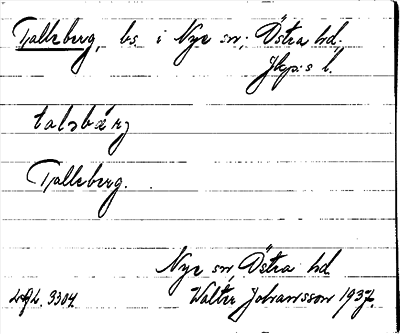 Talleberg, bs. i Nye sn, Östra hd,
Jkp:s l.
talsbärj
Talleberg.
Nye sn, Östra hd
Walter Johansson 1937.
3304